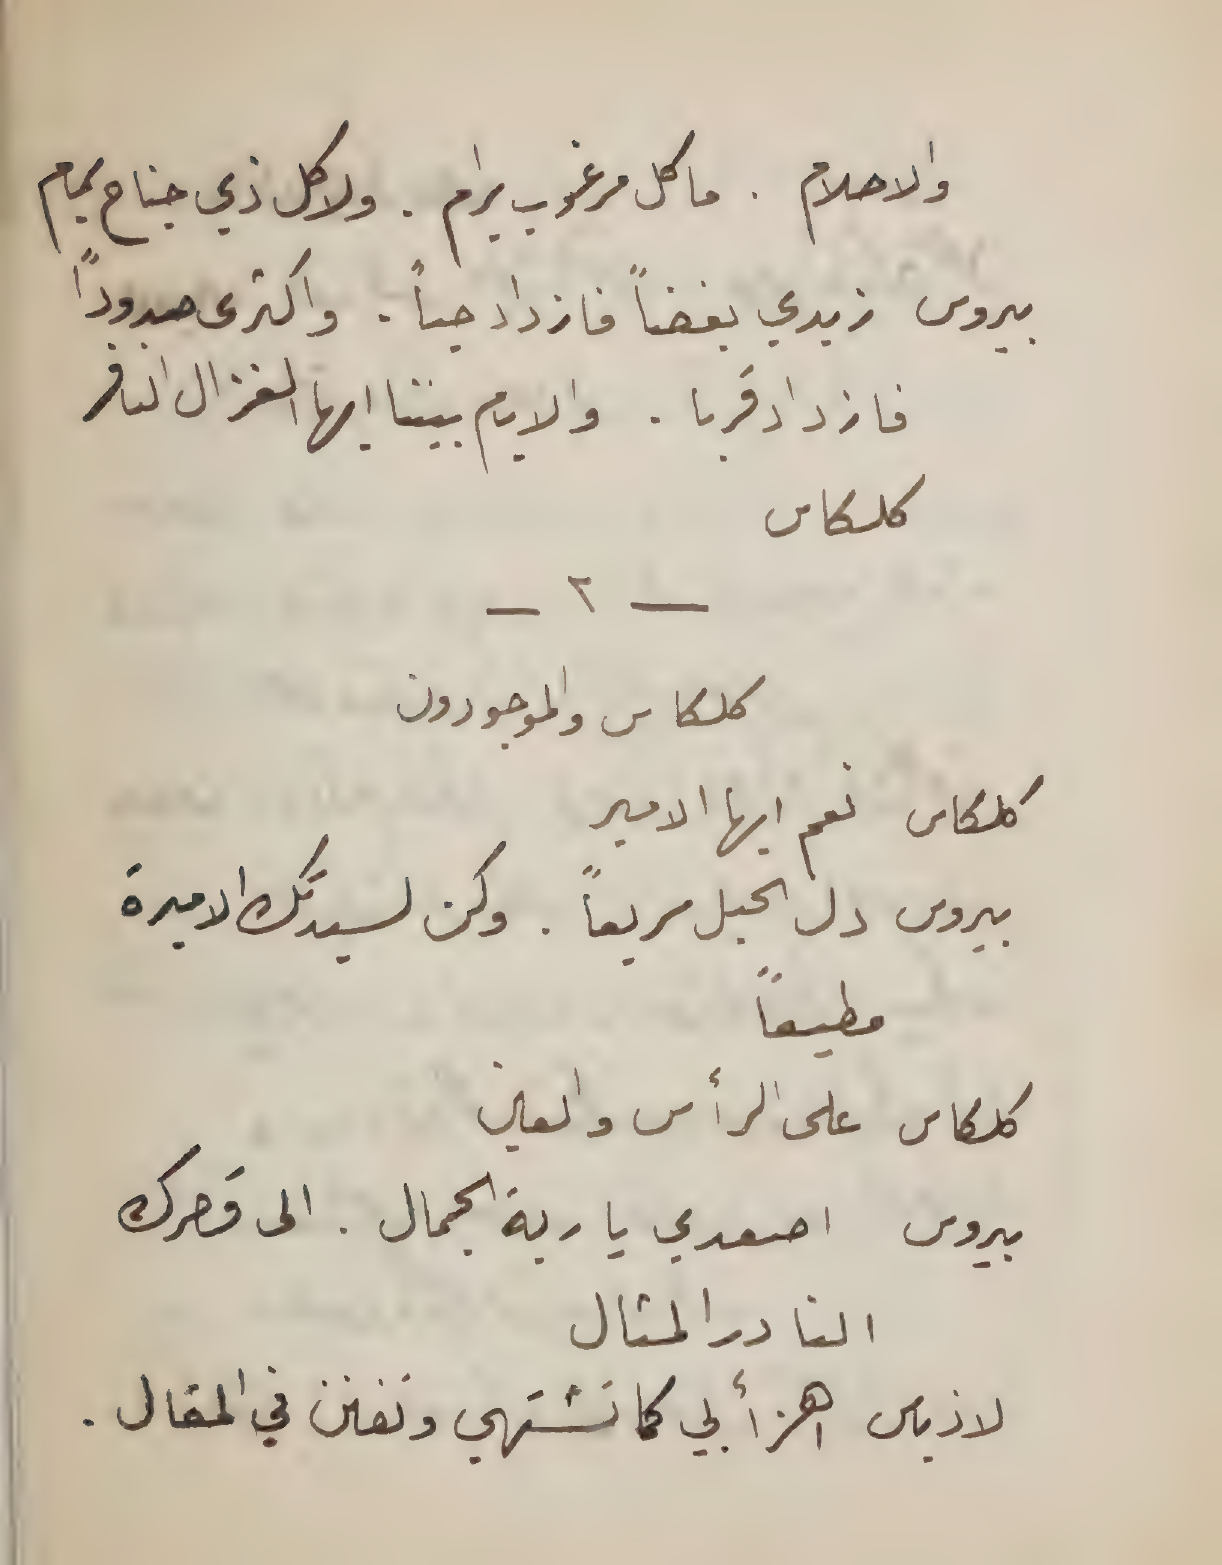 والاحلام . ما كل مرغوب يرام . ولا كل ذي جناح يمام
بيروس زيدي بغضاً فازداد حباً . واكثرى صدوداً
فازداد قربا . والايام بيننا ايها الغزال النافر
كلكاس
— ٢ —
كلكاس والموجودون
كلكاس نعم ايها الامير
بيروس دل الحبل سريعاً . وكن لسيدتك الاميرة
مطيعاً
كلكاس على الرأس والعين
بيروس اصعدي يا ربة الجمال . الى قصرك
النادر المثال
لاذياس اهزأ بي كما تشتهي وتفنن في المقال .